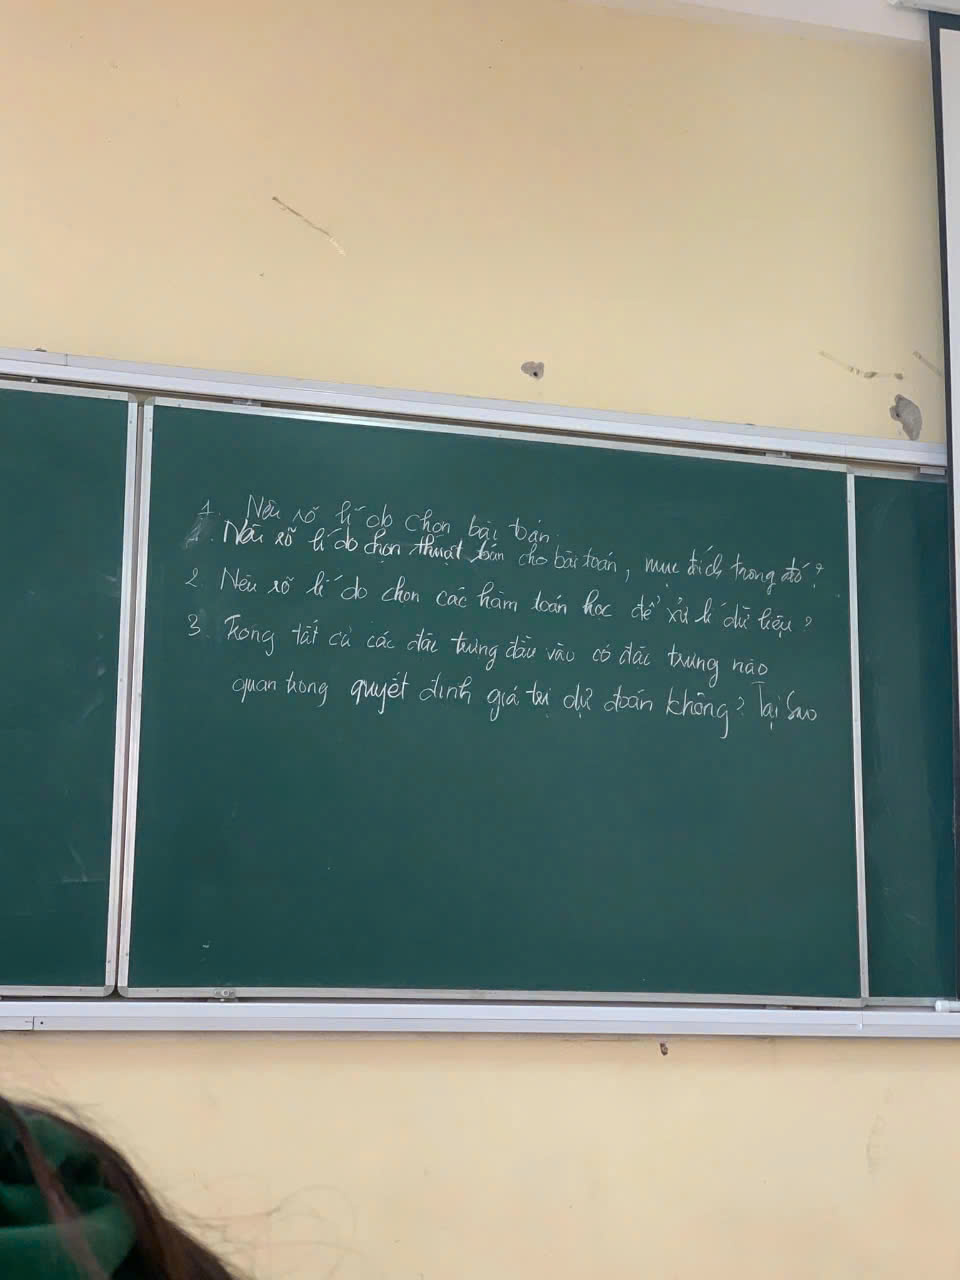 1. Nêu rõ lí do chọn bài toán.
1. Nêu rõ lí do chọn thuật toán cho bài toán, mục đích trong đó?
2 Nêu rõ lí do chọn các hàm toán học để xử lí dữ liệu?
3. Trong tất cả các đặc trưng đầu vào có đặc trưng nào
quan trong quyết định giá trị dự đoán không? Tại Sao